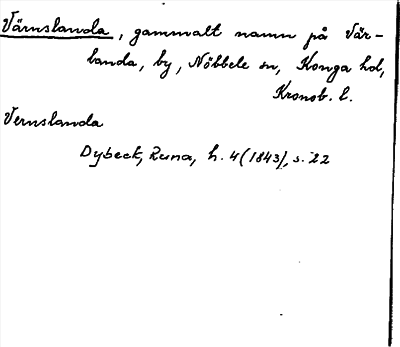 Värnslanda, gammalt namn på Vär-
landa, by, Nöbbele sn, Konga hd,
Kronob. l.
Vernslanda
Dybeck, Runa, h. 4 (1843), s. 22